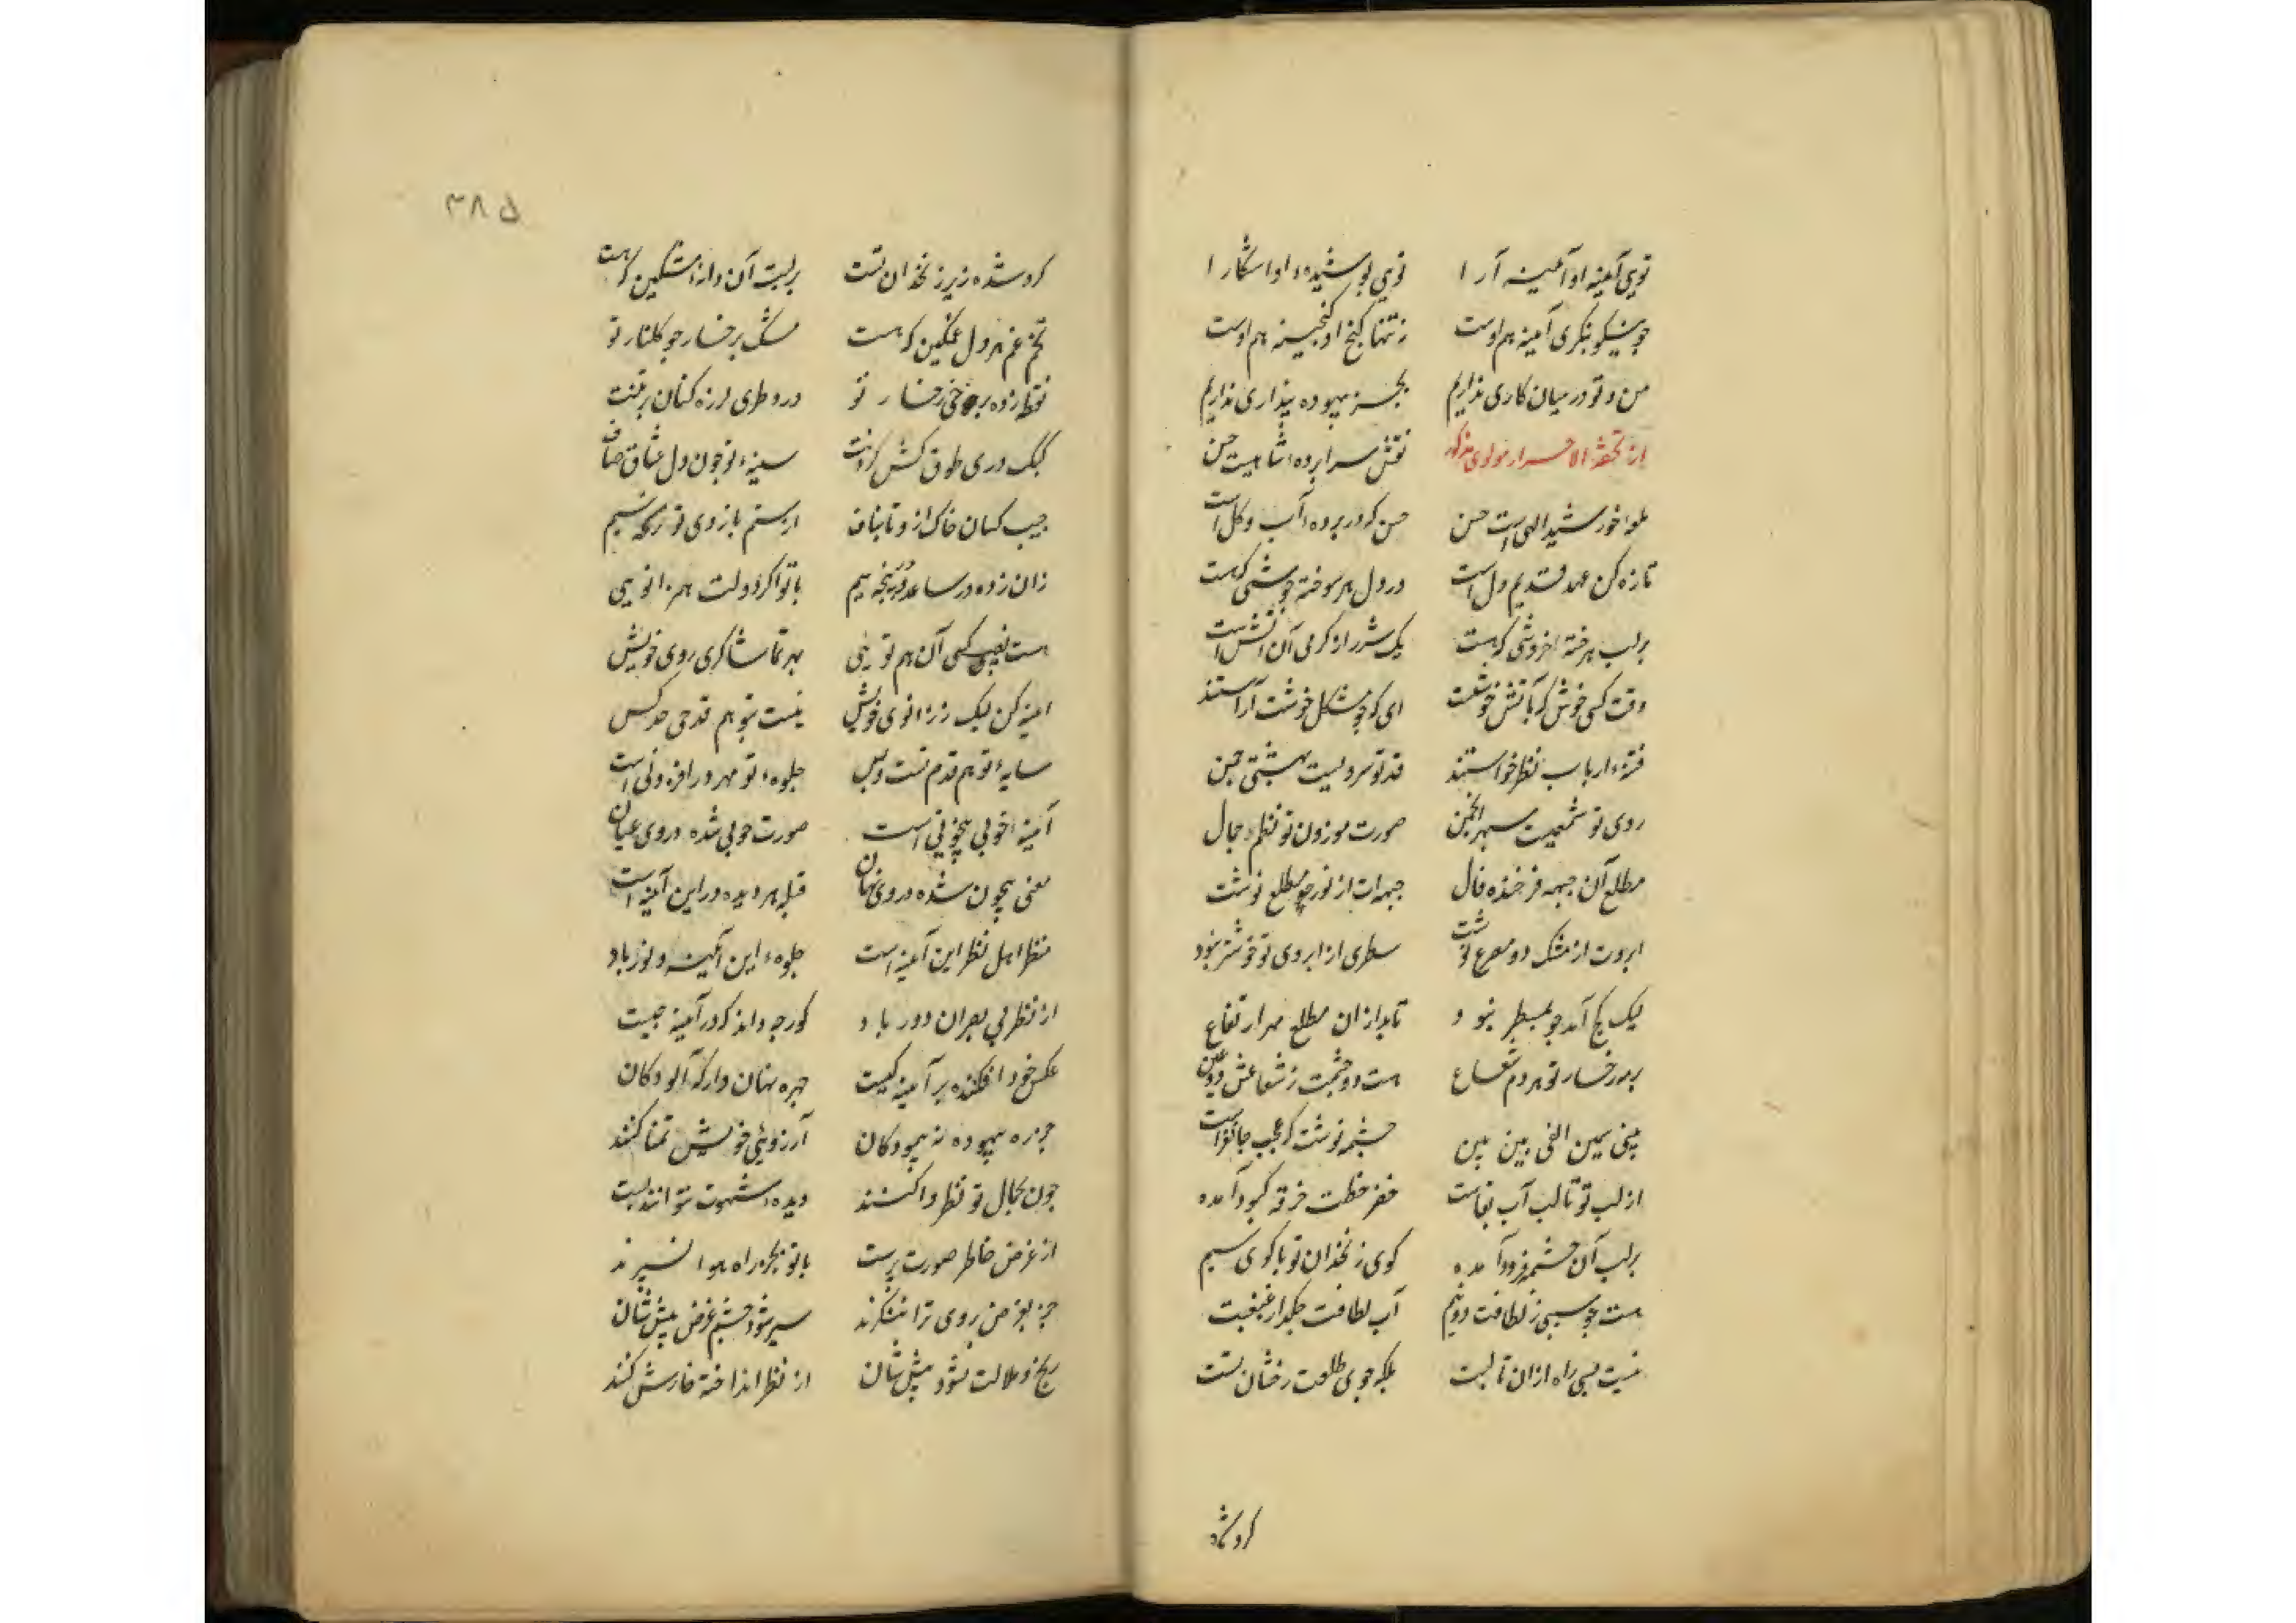 تویی آیینه او آیینه آرا تویی پوشیده و او آشکارا
چو نیکو بنگری آیینه هم اوست نه تنها گنج او گنجینه هم اوست
من و تو در میان کاری نداریم بجز بیهوده پنداری نداریم
از تحفة الاحرار مولوی مذکور نقش سراپرده شاهیست حسن
لمعه خورشید الهی است حسن حسن که در پرده آب و گل است
تازه کن عهد قدیم دل است در دل هر سوخته جوشی که هست
بر لب هر خسته خروشی که هست یک شرر از گرمی آن آتش است
وقت کسی خوش که بآتش خوشست ای که چو شکل خوشت آراستند
فتنه ارباب نظر خواستند قد تو سرویست بهشتی چمن
روی تو شمعیست سپهر انجمن صورت موزون تو نظم جمال
مطلع آن جبهه فرخنده فال جبهه‌ات از نور چو مطلع نوشت
ابروت از مشک دو مصرع نوشت سطری از ابروی تو خوشتر نبود
لیک کج آمد چو بمسطر نبود تابد از آن مطلع مهر ارتفاع
بر رخسار تو هر دم شعاع هست دو چشمت ز شعاعش دو عین
بینی سیمین الفی بین بین چشمه نوشت که عجب جانفزاست
از لب تو تا لب آب بقاست خضر خطت خرقه کبود آمده
بر لب آن چشمه فرود آمده گوی زنخدان تو با گوی سیم
هست چو سیبی ز لطافت دو نیم آب لطافت چکد از غبغبت
نیست بسی راه از آن تا لبت بلکه چو خوی طلعت رخشان تست
گرد شده
۳۸۵
گرد شده زیر زنخدان تست بر لبت آن دانه مشکین که هست
تخم غم هر دل غمگین که هست مشک بر رخسار چو گلنار تو
نقطه زده بر رخ رخسار تو در و طری لرزه کنان بر تنت
کبک دری طوق کش گردنت سینه تو چون دل عشاق صاف
جیب کسان چاک ازو تا بناف از ستم بازوی تو نیم
زان زده در ساعد تو پنجه سیم با تو اگر دولت همزانویی
هست نصیب کسی آن هم تویی بهر تماشاگری روی خویش
آینه کن لیک ز زانوی خویش نیست بتو هم قدمی حد کس
سایه تو هم قدم تست و بس جلوه تو مهر در افزونی است
آینه خوبی بیچونی است صورت خوبی شده در وی عیان
معنی بیچون شده در وی نهان قبله هر دیده ور این آینه است
منظر اهل نظر این آینه است جلوه این آینه و نور باد
از نظر بی بصران دور باد کور چه داند که در آیینه چیست
عکس خود افکنده بر آیینه کیست چهره نهان دار که آلودگان
جز ره بیهوده نه پیمودگان آرزوئی خویش تمنا کنند
چون بجمال تو نظر وا کنند دیده شهوت نتوانند بست
از غرض خاطر صورت پرست با تو بجز راه هوا نسپرند
جز بغرض روی ترا ننگرند سیر شود چشم غرض پیششان
رنج و ملالت شود پیششان از نظر انداخته خارش کنند